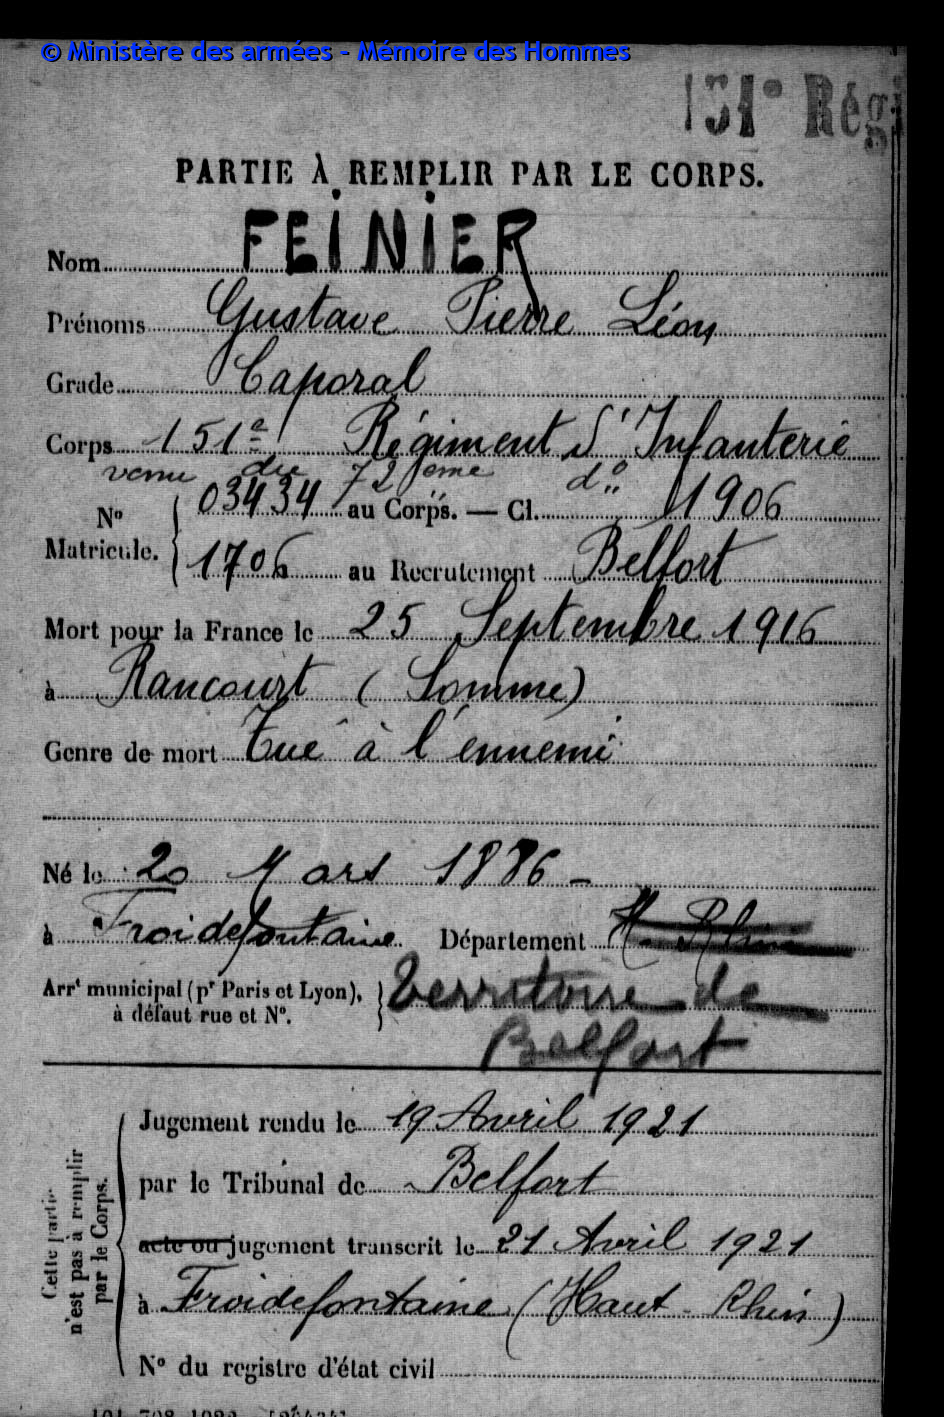 © Ministère des armées - Mémoire des Hommes
151e Régi
PARTIE À REMPLIR PAR LE CORPS.
Nom FEINIER
Prénoms Gustave Pierre Léon
Grade Caporal
Corps 151e Régiment d'Infanterie
venu du 72 eme do
No Matricule. 03434 au Corps. — Cl. 1906
1706 au Recrutement Belfort
Mort pour la France le 25 Septembre 1916
à Rancourt (Somme)
Genre de mort Tué à l'ennemi
Né le 20 Mars 1886 -
à Froidefontaine Département H. Rhin
Arrt municipal (pr Paris et Lyon), à défaut rue et No. Territoire de
Belfort
Cette partie n'est pas à remplir par le Corps.
Jugement rendu le 19 Avril 1921
par le Tribunal de Belfort
acte ou jugement transcrit le 21 Avril 1921
à Froidefontaine (Haut-Rhin)
No du registre d'état civil